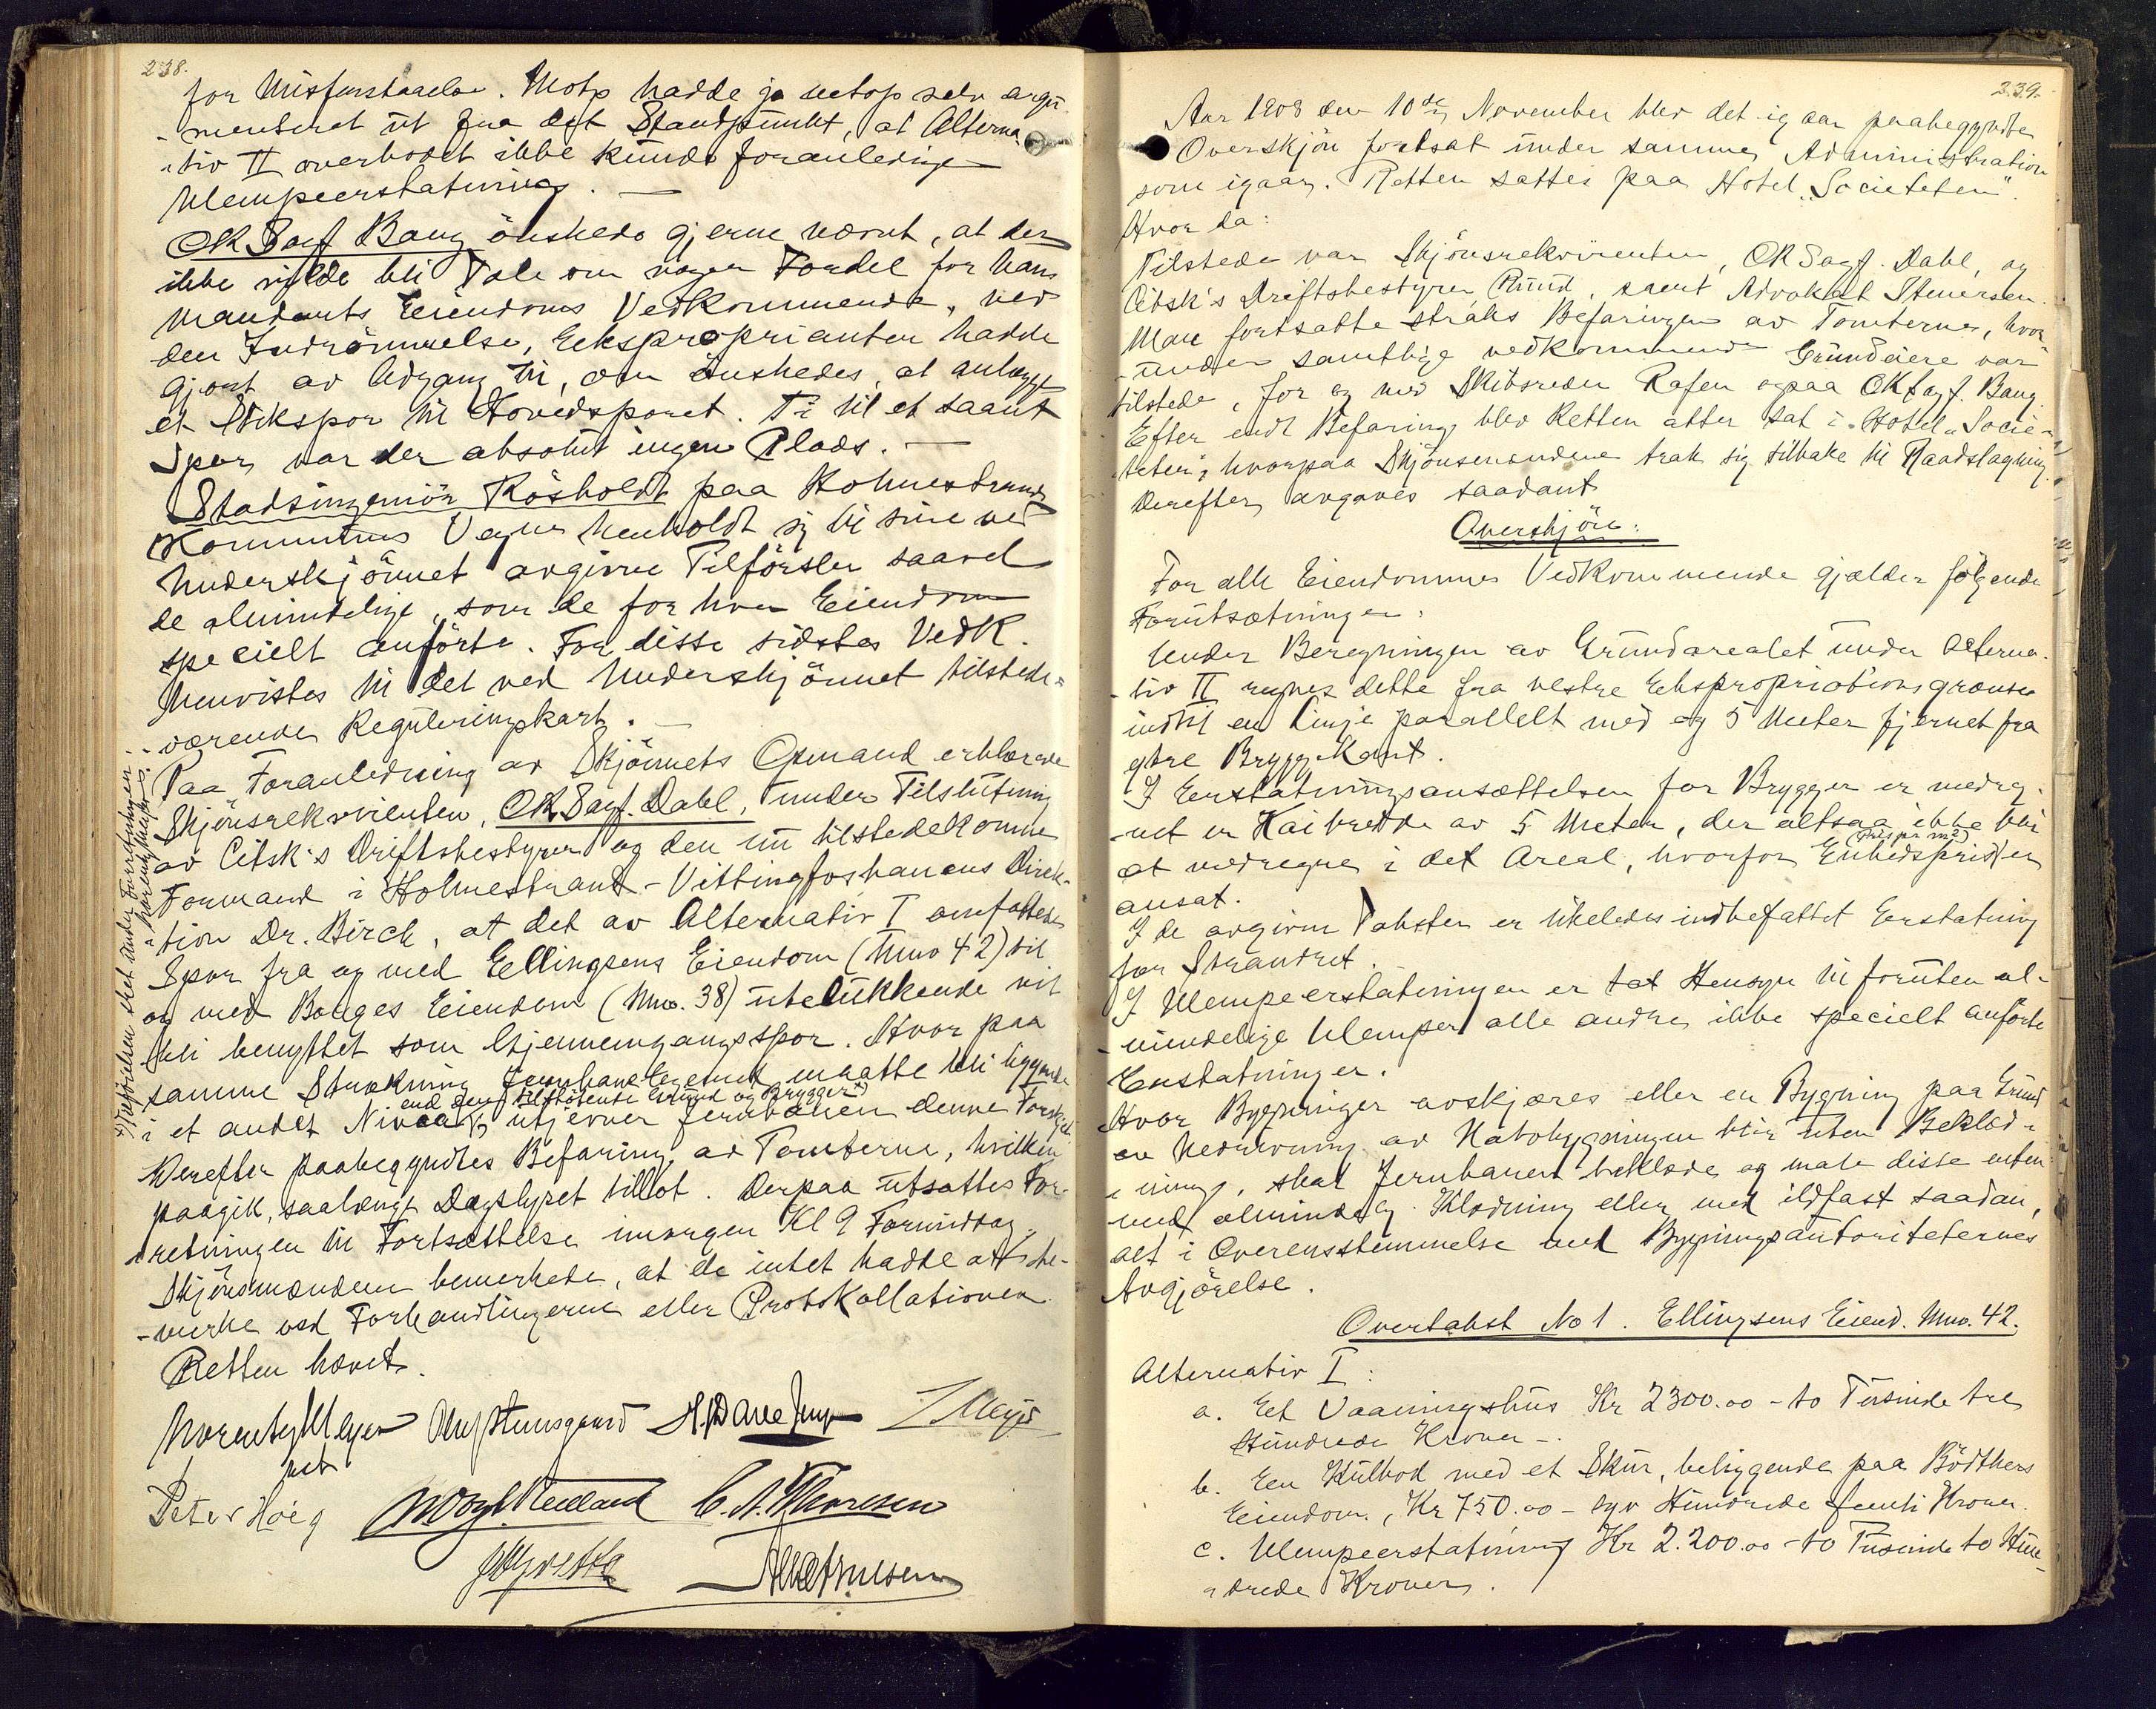 238.
for Misforstaaelse. Motp hadde jo netop selv argu-
-menteret ut fra det Standpunkt, at Alterna-
-tiv II overhodet ikke kunde foranledige
Ulempeerstatning. —
OR Sagf Bang önskede gjerne nævnt, at der
ikke vilde bli Tale om nogen Fordel for hans
Mandants Eiendoms Vedkommende, ved
den Indrömmelse, Eksproprianten hadde
gjort av Adgang til, om önskedes, at anlægge
et Stikspor til Hovedsporet. Ti til et saant
Spor var der absolut ingen Plads. —
Stadsingeniör Rösholdt paa Holmestrands
Kommunes Vegne henholdt sig til sine ved
Underskjönnet avgivne Tilförsler saavel
de almindelige, som de for hver Eiendom
specielt anförte. For disse sidstes VedK.
henvistes til det ved Underskjönnet tilstede-
-værende Reguleringskart. —
Paa Foranledning av Skjönnets Opmand erklærede
Skjönsrekvirenten, OR Sagf. Dahl, under Tilslutning
av Citsk's Driftsbestyrer og den nu tilstedekomne
Formand i Holmestrand-Vittingfosbanens Direk-
tion Dr. Birch, at det av Alternativ I omfattede
Spor fra og med Ellingsens Eiendom (Mno 42) til
og med Bauges Eiendom (Mno. 38) utelukkende vil
bli benyttet som Gjennemgangsspor. Hvor paa
samme Strækning Jernbanelegemet maatte bli liggende
end den tilstötende Grund og Brygger x)
i et andet Niveau utjevner Jernbanen denne Forskjel.
Derefter paabegyndtes Befaring av Tomterne, hvilken
paagik, saalængt Dagslyset tillot. Derpaa utsattes For-
-retningen til Fortsættelse imorgen Kl 9 Formiddag.
Skjönsmændene bemerkede, at de intet hadde at be-
-merke ved Forhandlingerne eller ProtoKollationen.
Retten hævet.
Peter Höeg
x) Tilföielsen sket under Forretningen.
339.
Aar 1908 den 10de November blev det igaar paabegyndte
Overskjön fortsat under samme Administration
som igaar. Retten sattes paa Hotel "Societeten".
Hvor da:
Tilstede var Skjönsrekvirenten, OR Sagf. Dahl, og
Citsk's Driftsbestyrer Ruud, samt Advokat Stenersen.
Man fortsatte straks Befaringen av Tomterne, hvor-
-under samtlige vedkommende Grundeiere var
tilstede, for og ved Skibsreder Rafen ogsaa ORsagf. Bang.
Efter endt Befaring blev Retten atter sat i Hotel "Socie-
-teten", hvorpaa Skjönsmændene trak sig tilbake til Raadslagning.
Derefter avgaves saadant
Overskjön:
For alle Eiendommes Vedkommende gjælder fölgende
Forutsætninger:
Under Beregningen av Grundarealet under Alterna-
-tiv II regnes dette fra vestre Ekspropriationsgrænse
indtil en Linje parallelt med og 5 Meter fjernet fra
ytre Bryggekant.
I Erstatningsansættelsen for Brygger er medreg-
-net en Kaibredde av 5 Meter, der altsaa ikke blir
(Pris pr m2)
at medregne i det Areal, hvorfor Enhedspris er
ansat.
I de avgivne Takster er likeledes indbefattet Erstatning
for Strandret.
I Ulempeerstatningen er tat Hensyn til foruten al-
-mindelige Ulemper alle andre ikke specielt anförte
Erstatninger.
Hvor Bygninger avskjæres eller en Bygning paa Grund
av Nedrivning av Nabobygningen blir uten Beklæd-
-ning, skal Jernbanen beklæde og male disse enten
med almindelig Klædning eller med ildfast saadan,
alt i Overensstemmelse med Bygningsautoriteternes
Avgjörelse.
Overtakst No 1. Ellingsens Eiend. Mno. 42.
Alternativ I:
a. Et Vaaningshus Kr 2300.00 - to Tusinde tre
Hundrede Kroner -.
b. En Kulbod med et Skur, beliggende paa Bödtkers
Eiendom, Kr 750.00 - syv Hundrede femti Kroner.
c. Ulempeerstatning Kr 2.200.00 - to Tusinde to Hun-
-drede Kroner.